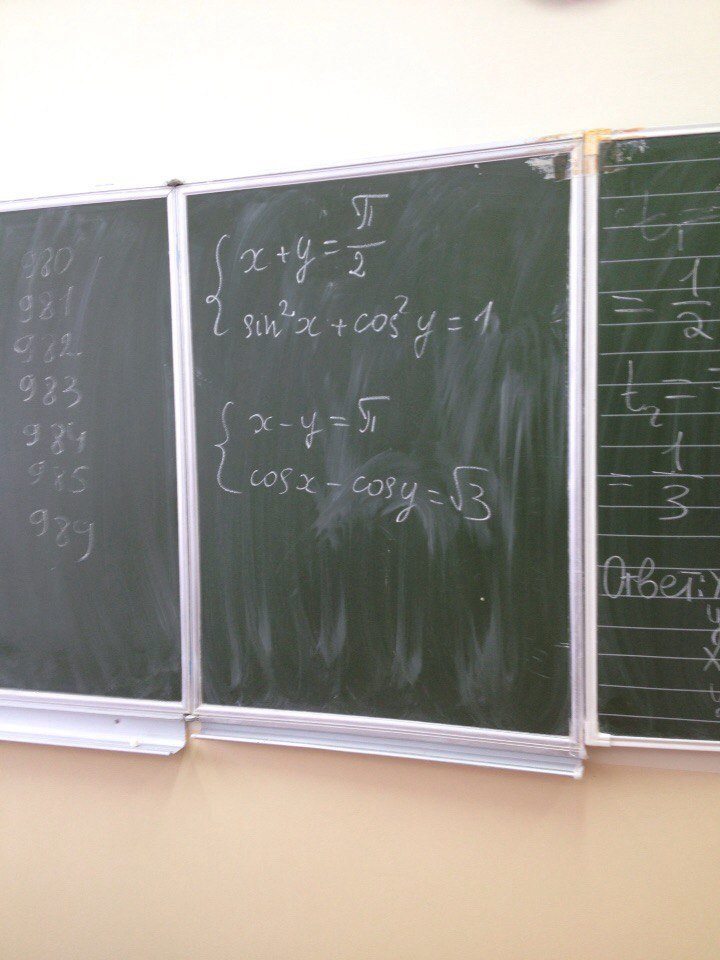 980
981
982
983
984
985
989
x + y = π/2
sin²x + cos²y = 1
x - y = π
cosx - cosy = √3
t₁ =
= 1/2
t₂ =
= 1/3
Ответ: